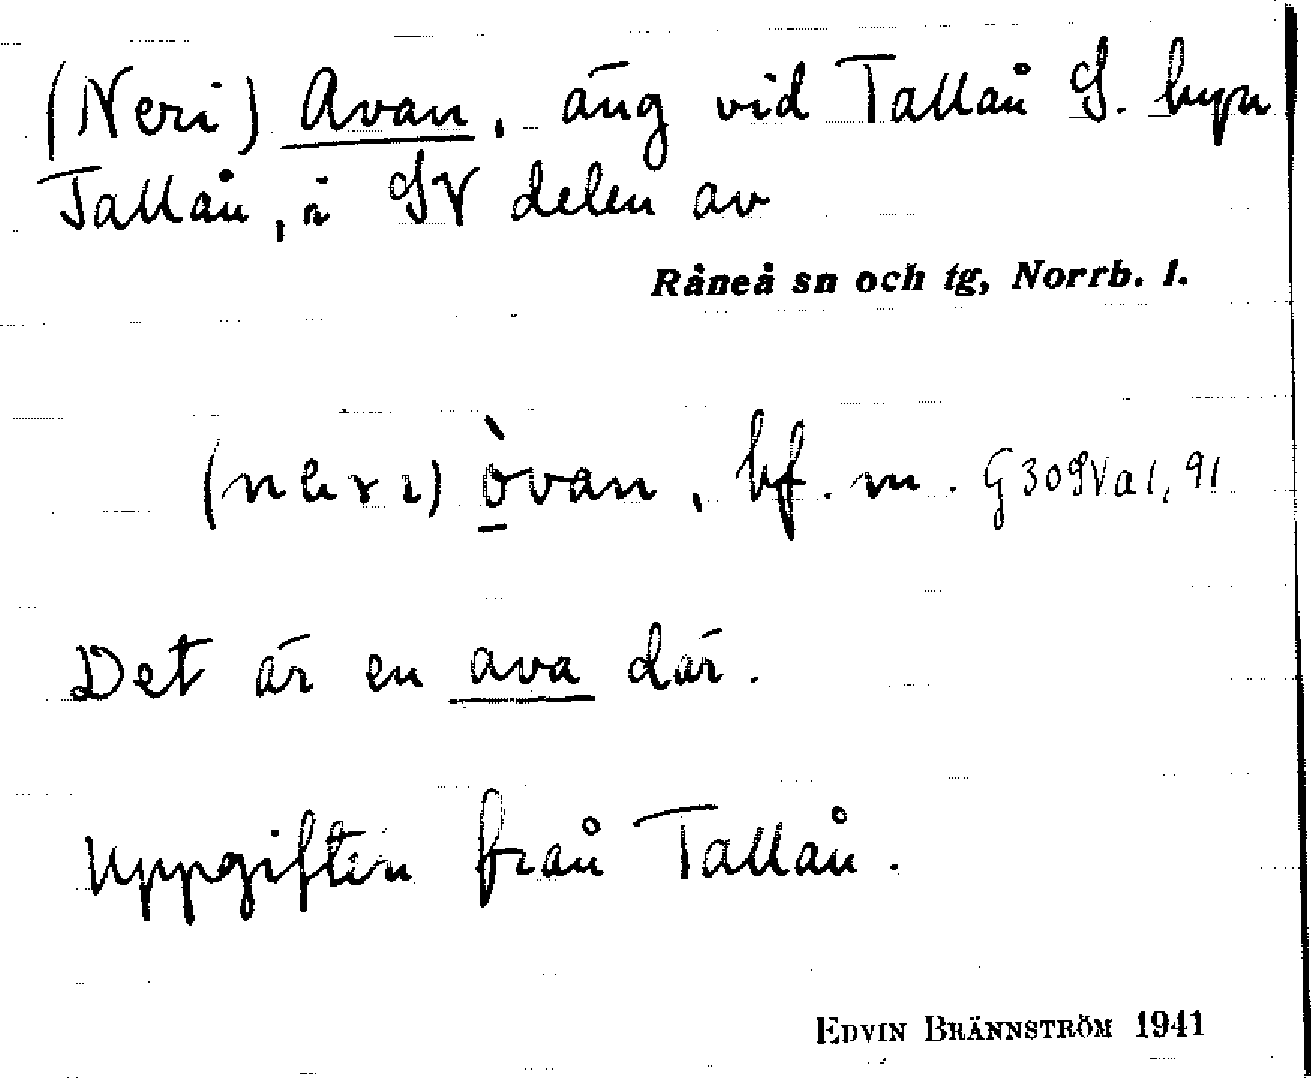 (Neri) Avan, äng vid Tallån S. byn
Tallån, i SV delen av
Råneå sn och tg, Norrb. l.
òvan, bf. m. G309Va1, 91
Det är en ava där.
Uppgiften från Tallån.
EDVIN BRÄNNSTRÖM 1941